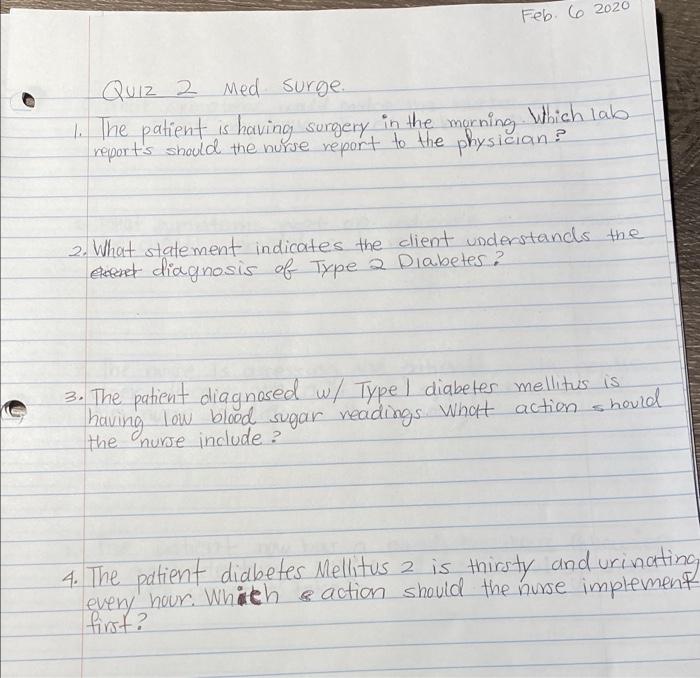 Feb. 6 2020
Quiz 2 Med. Surge.
1. The patient is having surgery in the morning. Which lab
reports should the nurse report to the physician?
2. What statement indicates the client understands the
diagnosis of Type 2 Diabetes?
3. The patient diagnosed w/ Type 1 diabetes mellitus is
having low blood sugar readings. What action should
the nurse include?
4. The patient diabetes Mellitus 2 is thirsty and urinating
every hour. Which action should the nurse implement
first?